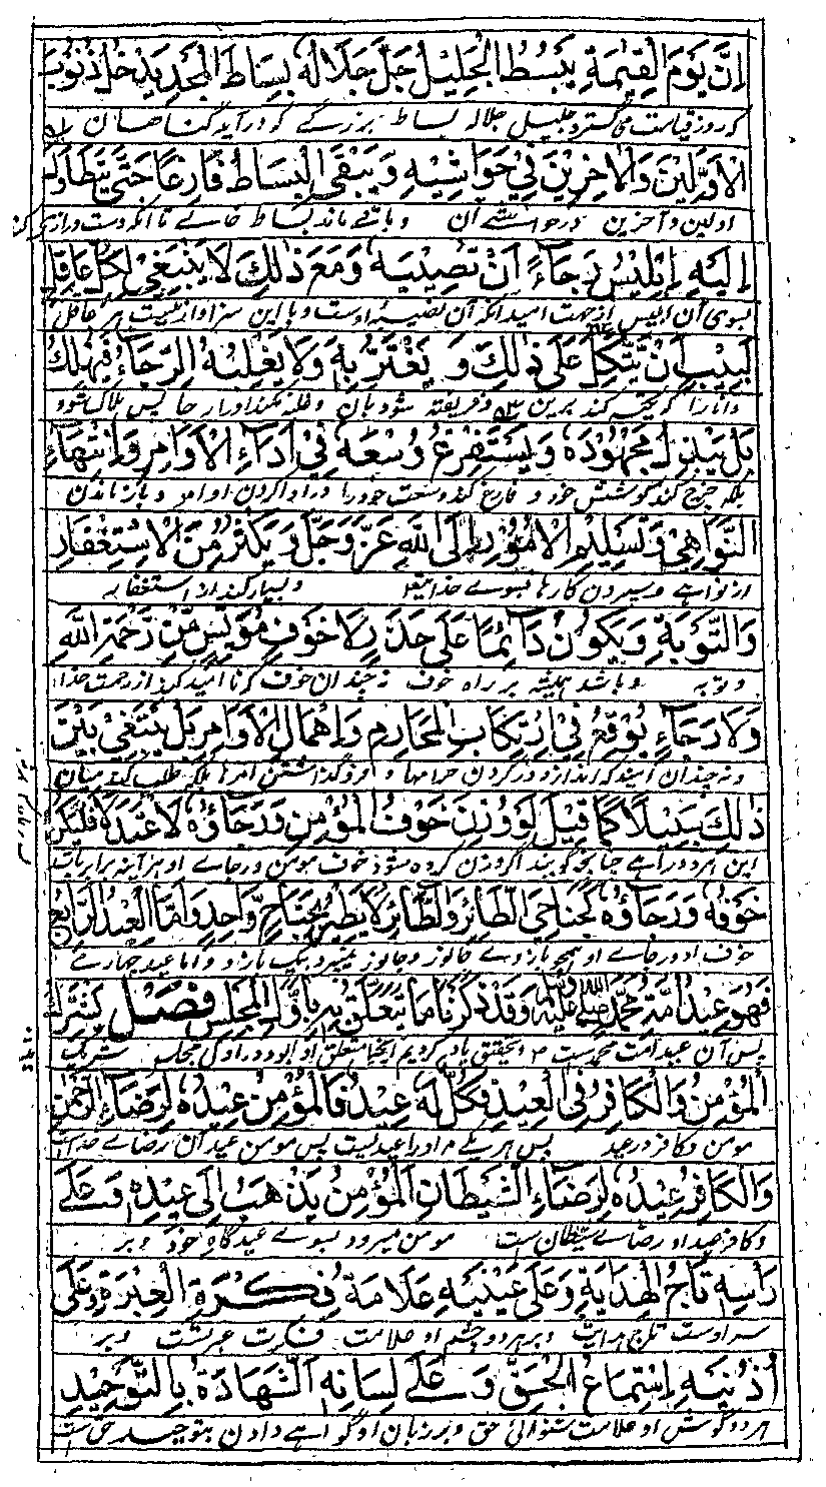 اِنَّ يَوْمَ الْقِيٰمَةِ يَبْسُطُ الْجَلِيْلُ جَلَّ جَلَالُهٗ بِسَاطَ الْمَجْدِ يَدْخُلُ ذُنُوْبُ
كه روز قیامت می گسترد جلیل جلاله بساط بزرگے که در آید گناهان
الْاَوَّلِيْنَ وَالْاٰخِرِيْنَ فِيْ حَوَاشِيْهِ وَيَبْقَى الْبِسَاطُ فَارِغًا حَتّٰى يَتَطَاوَلَ
اولین و آخرین در حواشی آن و باقے ماند بساط خالے تا آنکه دست درازی کند
اِلَيْهِ اِبْلِيْسُ رَجَاءً اَنْ تُصِيْبَهٗ وَمَعَ ذٰلِكَ لَا يَنْبَغِيْ لِكُلِّ عَاقِلٍ
بسوی آن ابلیس از جهت امید آنکه آن نصیبهٔ اوست و با این سزاوار نیست هر عاقل
لَبِيْبٍ اَنْ يَّتَّكِلَ عَلٰى ذٰلِكَ وَ يَغْتَرَّ بِهٖ وَلَا يَغْلِبُهُ الرَّجَاءُ فَيَهْلِكُ
دانا را که تکیه کند برین و فریفته شود بآن و غلبه نکند او را رجا پس هلاک شود
بَلْ يَبْذُلُ مَجْهُوْدَهٗ وَيَسْتَفْرِغُ وُسْعَهٗ فِيْ اَدَاءِ الْاَوَامِرِ وَانْتِهَاءِ
بلکه خرچ کند کوشش خود و فارغ کند وسعت خود را در ادا کردن اوامر و باز ماندن
النَّوَاهِيْ وَتَسْلِيْمِ الْاُمُوْرِ اِلَى اللّٰهِ عَزَّ وَجَلَّ وَيَكْثُرُ مِنَ الْاِسْتِغْفَارِ
از نواهے و سپردن کارها بسوے خدایتعالی و بسیار کند از استغفار
وَالتَّوْبَةِ وَيَكُوْنُ دَائِمًا عَلٰى حَذَرٍ لَا خَوْفٍ مُوْيِسٍ مِّنْ رَّحْمَةِ اللّٰهِ
و توبه و باشد همیشه بر راه خوف نه چندان خوف که نا امید کند از رحمت خدا
وَلَا رَجَاءٍ يُوْقِعُ فِيْ ارْتِكَابِ الْمَحَارِمِ وَاِهْمَالِ الْاَوَامِرِ بَلْ يَبْتَغِيْ بَيْنَ
و نه چندان امید که اندازد در کردن حرامها و فرو گذاشتن امرها بلکه طلب کند میان
ذٰلِكَ سَبِيْلًا كَمَا قِيْلَ لَوْ وُزِنَ خَوْفُ الْمُؤْمِنِ وَرَجَاؤُهٗ لَاعْتَدَلَا فَلْيَكُنْ
این هر دو راهے چنانچه گویند اگر وزن کرده شود خوف مومن و رجاے او هر آینه برابر باشد
خَوْفُهٗ وَرَجَاؤُهٗ كَجَنَاحَيِ الطَّائِرِ وَالطَّائِرُ لَا يَطِيْرُ بِجَنَاحٍ وَّاحِدٍ وَاَمَّا الْعِيْدُ الرَّابِعُ
خوف او و رجاے او همچو بازوے جانور و جانور نمیپرد بیک بازو و اما عید چهارم
فَهُوَ عِيْدُ اُمَّةِ مُحَمَّدٍ صلى الله عليه وسلم وَقَدْ ذَكَرْنَا مَا يَتَعَلَّقُ بِهٖ بِاَوَّلِ الْمَجْلِسِ فَصْلٌ يَشْتَرِكُ
پس آن عید امت محمدست و بتحقیق یاد کردیم انچه متعلق او بود در اول مجلس شریک
الْمُؤْمِنُ وَالْكَافِرُ فِي الْعِيْدِ فَكُلٌّ لَهٗ عِيْدٌ فَالْمُؤْمِنُ عِيْدُهٗ لِرِضَاءِ الرَّحْمٰنِ
مومن و کافر در عید پس هر یکے را عیدست پس مومن عید آن رضاے خداست
وَالْكَافِرُ عِيْدُهٗ لِرِضَاءِ الشَّيْطَانِ الْمُؤْمِنُ يَذْهَبُ اِلٰى عِيْدِهٖ وَعَلٰى
و کافر عید او رضاے شیطان ست مومن میرود بسوے عیدگاه خود و بر
رَاْسِهٖ تَاجُ الْهِدَايَةِ وَعَلٰى عَيْنَيْهِ عَلَامَةُ فِكْرَةِ الْعِبْرَةِ وَعَلٰى
سر اوست تاج هدایت و بر هر دو چشم او علامت فکرت عبرت و بر
اُذُنَيْهِ اِسْتِمَاعُ الْحَقِّ وَعَلٰى لِسَانِهِ الشَّهَادَةُ بِالتَّوْحِيْدِ
هر دو گوش او علامت شنوائی حق و بر زبان او گواهے دادن بتوحید حق